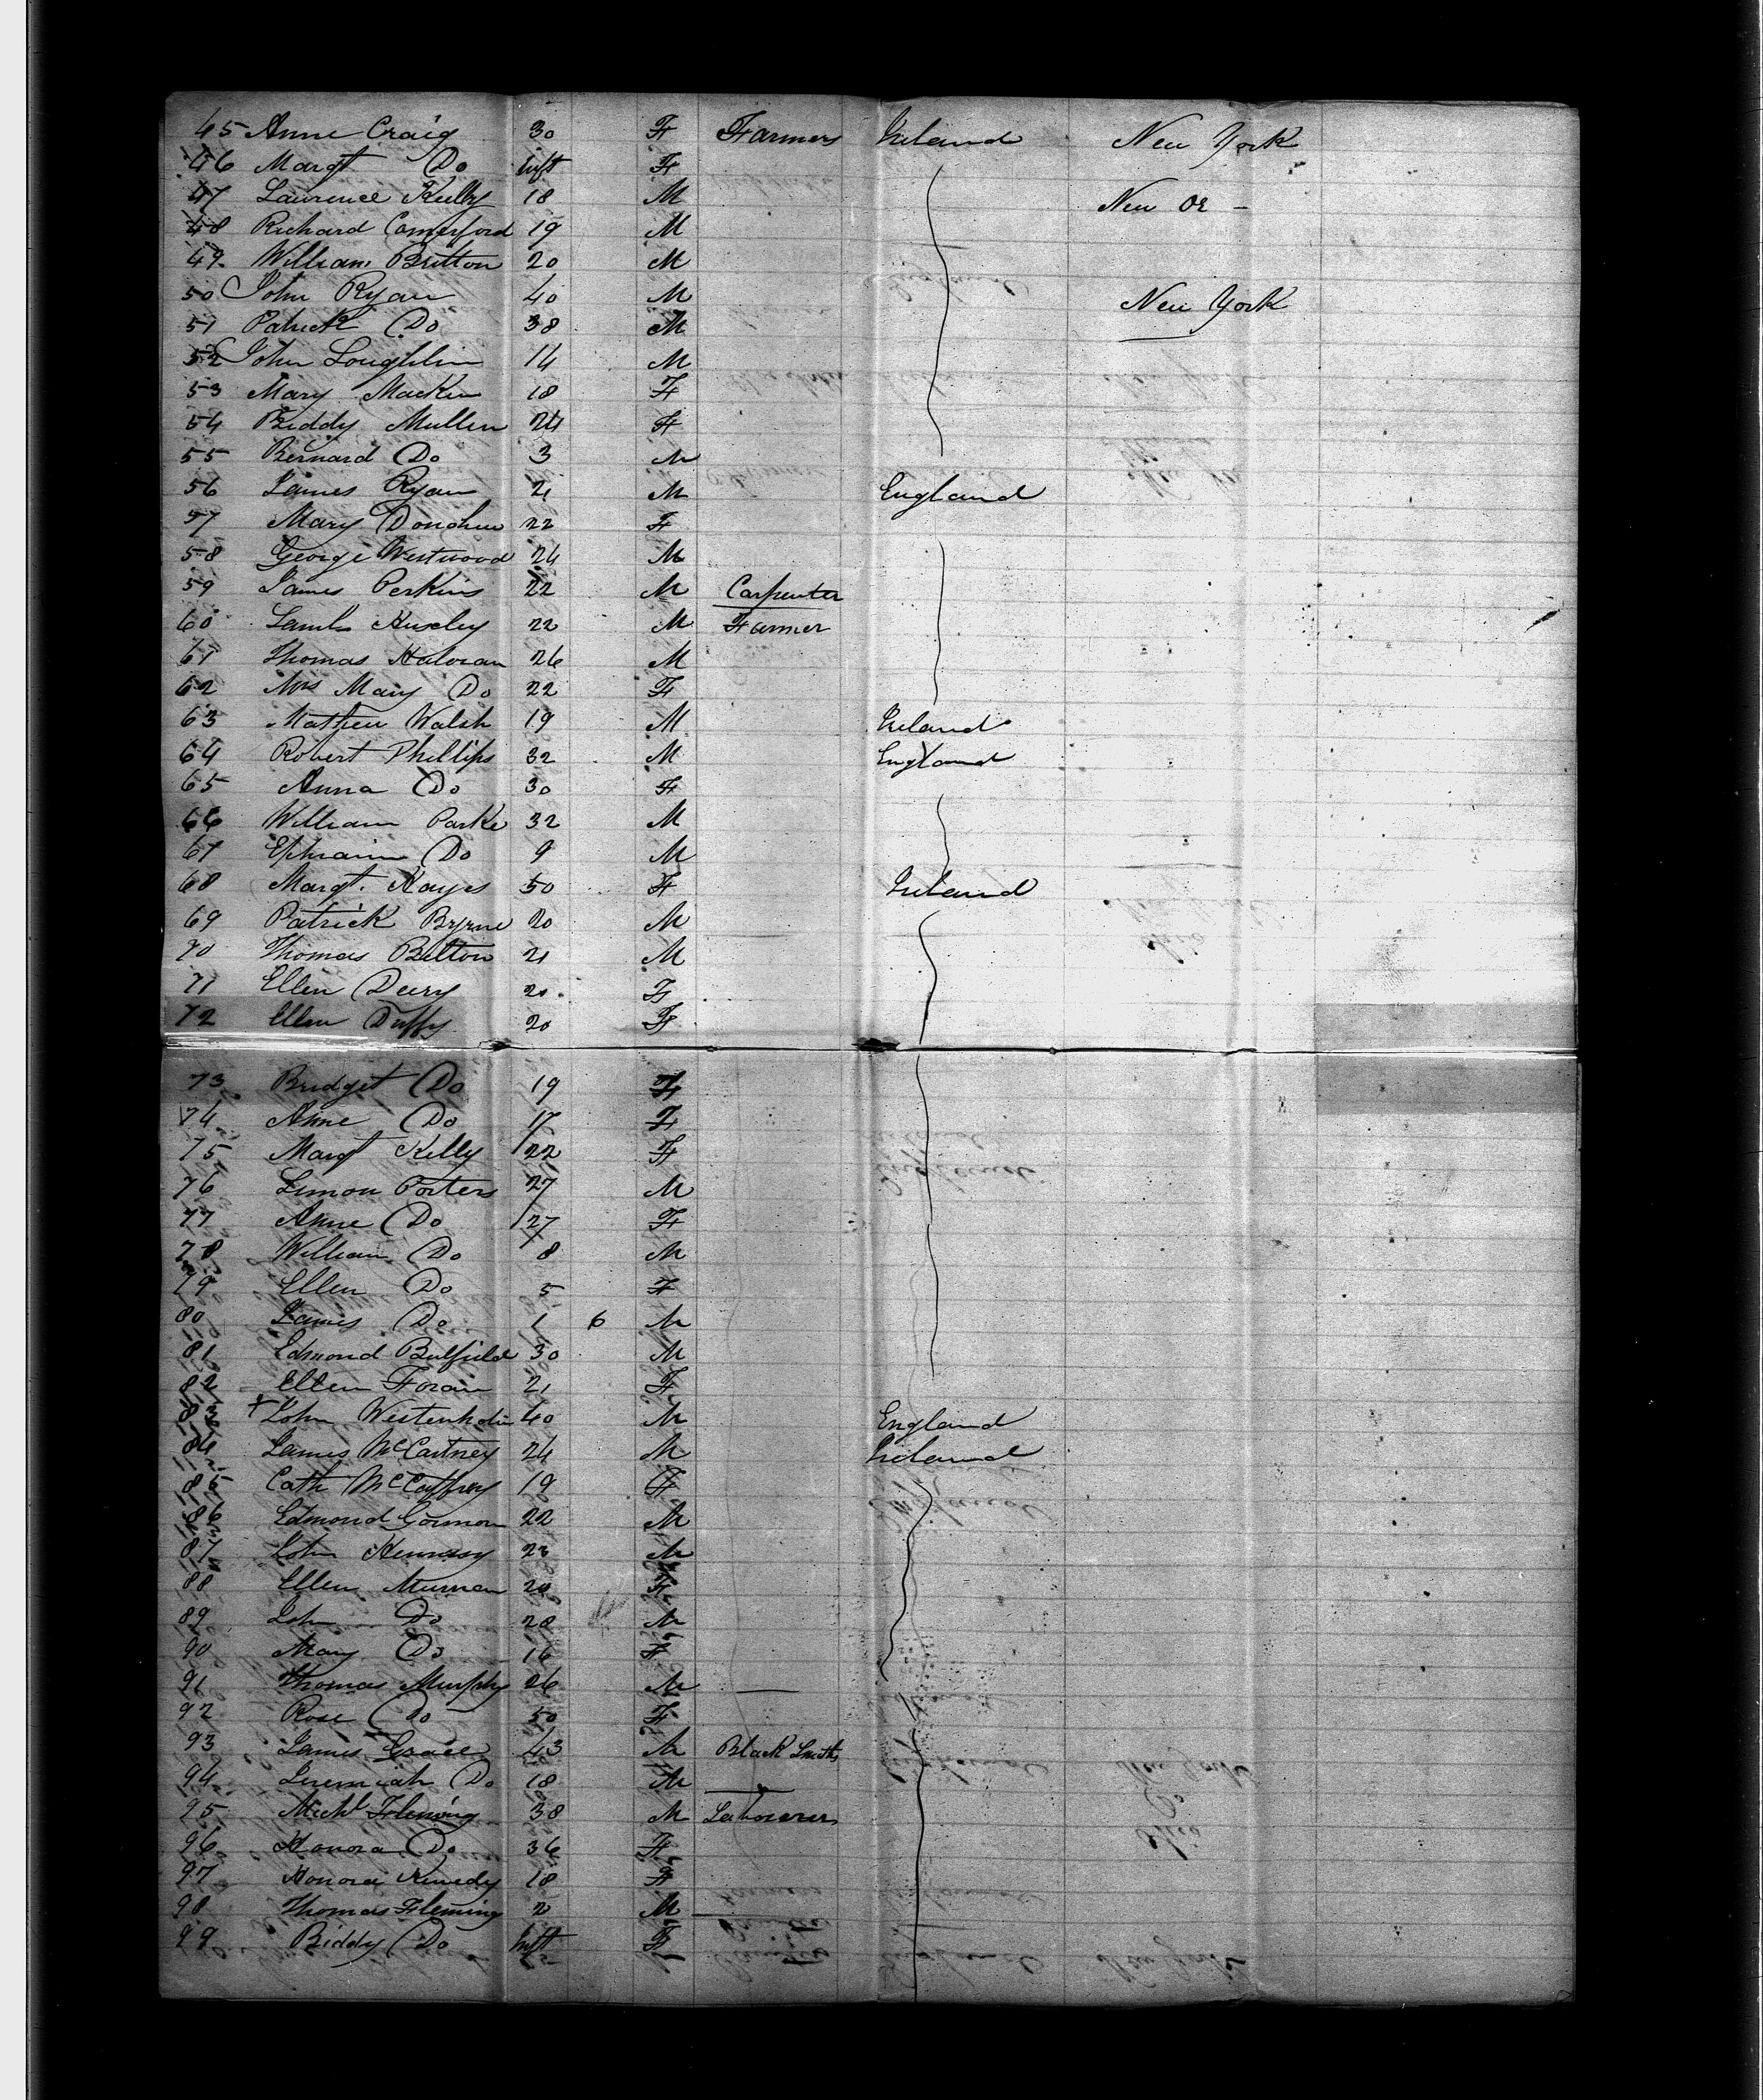 45 Anne Craig 30 F Farmers Ireland New York
46 Margt Do Inft F
47 Laurence Kelly 18 M New Or -
48 Richard Comerford 19 M
49. William Britton 20 M
50 John Ryan 40 M New York
51 Patrick Do 38 M
52 John Loughlin 14 M
53 Mary Mackin 18 F
54 Biddy Mullen 24 F
55 Bernard Do 3 M
56 James Ryan 21 M England
57 Mary Donohue 22 F
58 George Westwood 24 M
59 James Perkins 22 M Carpenter
60 Huxley 22 M Farmer
61 Thomas Haloran 26 M
62 Mrs Mary Do 22 F
63 Mathew Walsh 19 M Ireland
64 Robert Phillips 32 M England
65 Anna Do 30 F
66 William Parke 32 M
67 Ephraim Do 9 M
68 Margt. Hayes 50 F Ireland
69 Patrick Byrne 20 M
70 Thomas Bilton 21 M
71 Ellen Deery 20 F
72 Ellen Duffy 20 F
73 Bridget Do 19 F
74 Anne Do 17 F
75 Margt Kelly 22 F
76 Simon Porters 27 M
77 Anne Do 27 F
78 William Do 8 M
79 Ellen Do 5 F
80 James Do 1 6 M
81 Edmond Bulfield 30 M
82 Ellen Foran 21 F
83 John 40 M England
84 James McCartney 24 M Ireland
85 Cath McCaffrey 19 F
86 Edmond Gorman 22 M
87 John Hennssy 23 M
88 Ellen Murnan 20 F
89 John Do 28 M
90 Mary Do 16 F
91 Thomas Murphy 26 M
92 Rose Do 50 F
93 James Grace 43 M Black Smith
94 Jeremiah Do 18 M
95 Michl Fleming 38 M Labourers
96 Honora Do 36 F
97 Honora Kenedy 18 F
98 Thomas Fleming 2 M
99 Biddy Do Inft F